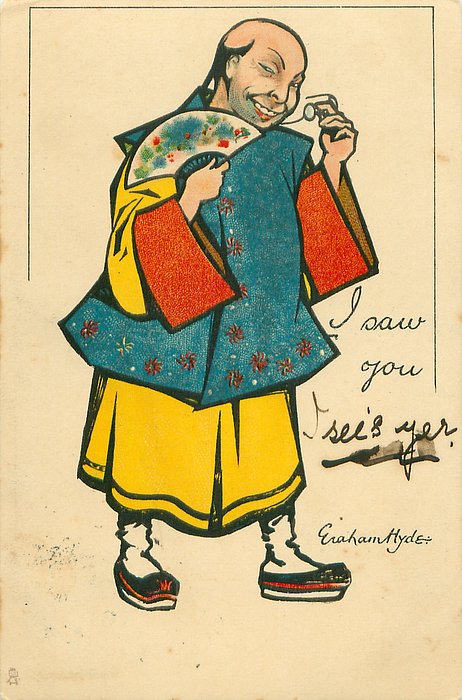 I saw
you
I see's yer.
Graham Hyde